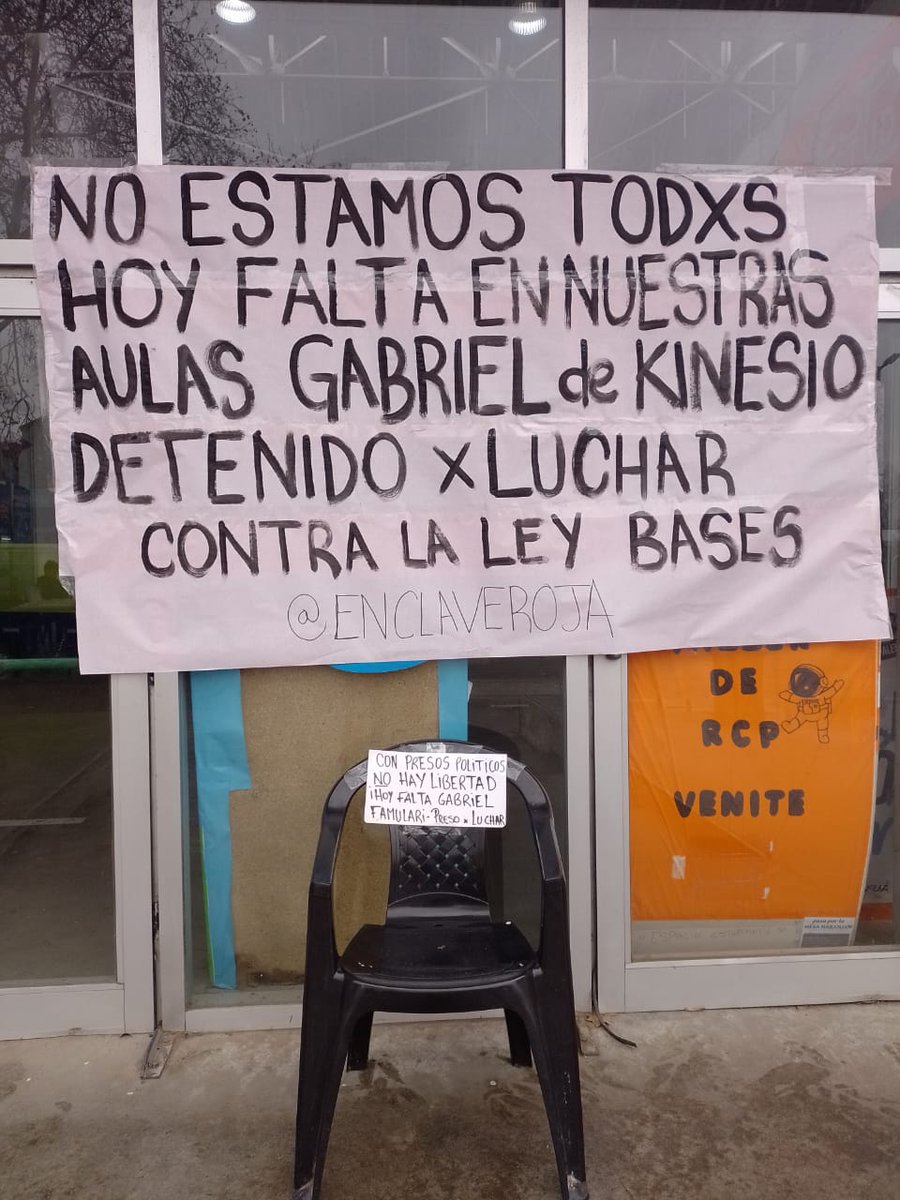 NO ESTAMOS TODXS
HOY FALTA EN NUESTRAS
AULAS GABRIEL de KINESIO
DETENIDO x LUCHAR
CONTRA LA LEY BASES
@ENCLAVEROJA
CON PRESOS POLITICOS
NO HAY LIBERTAD
¡HOY FALTA GABRIEL
FAMULARI - PRESO x LUCHAR
DE
RCP
VENITE